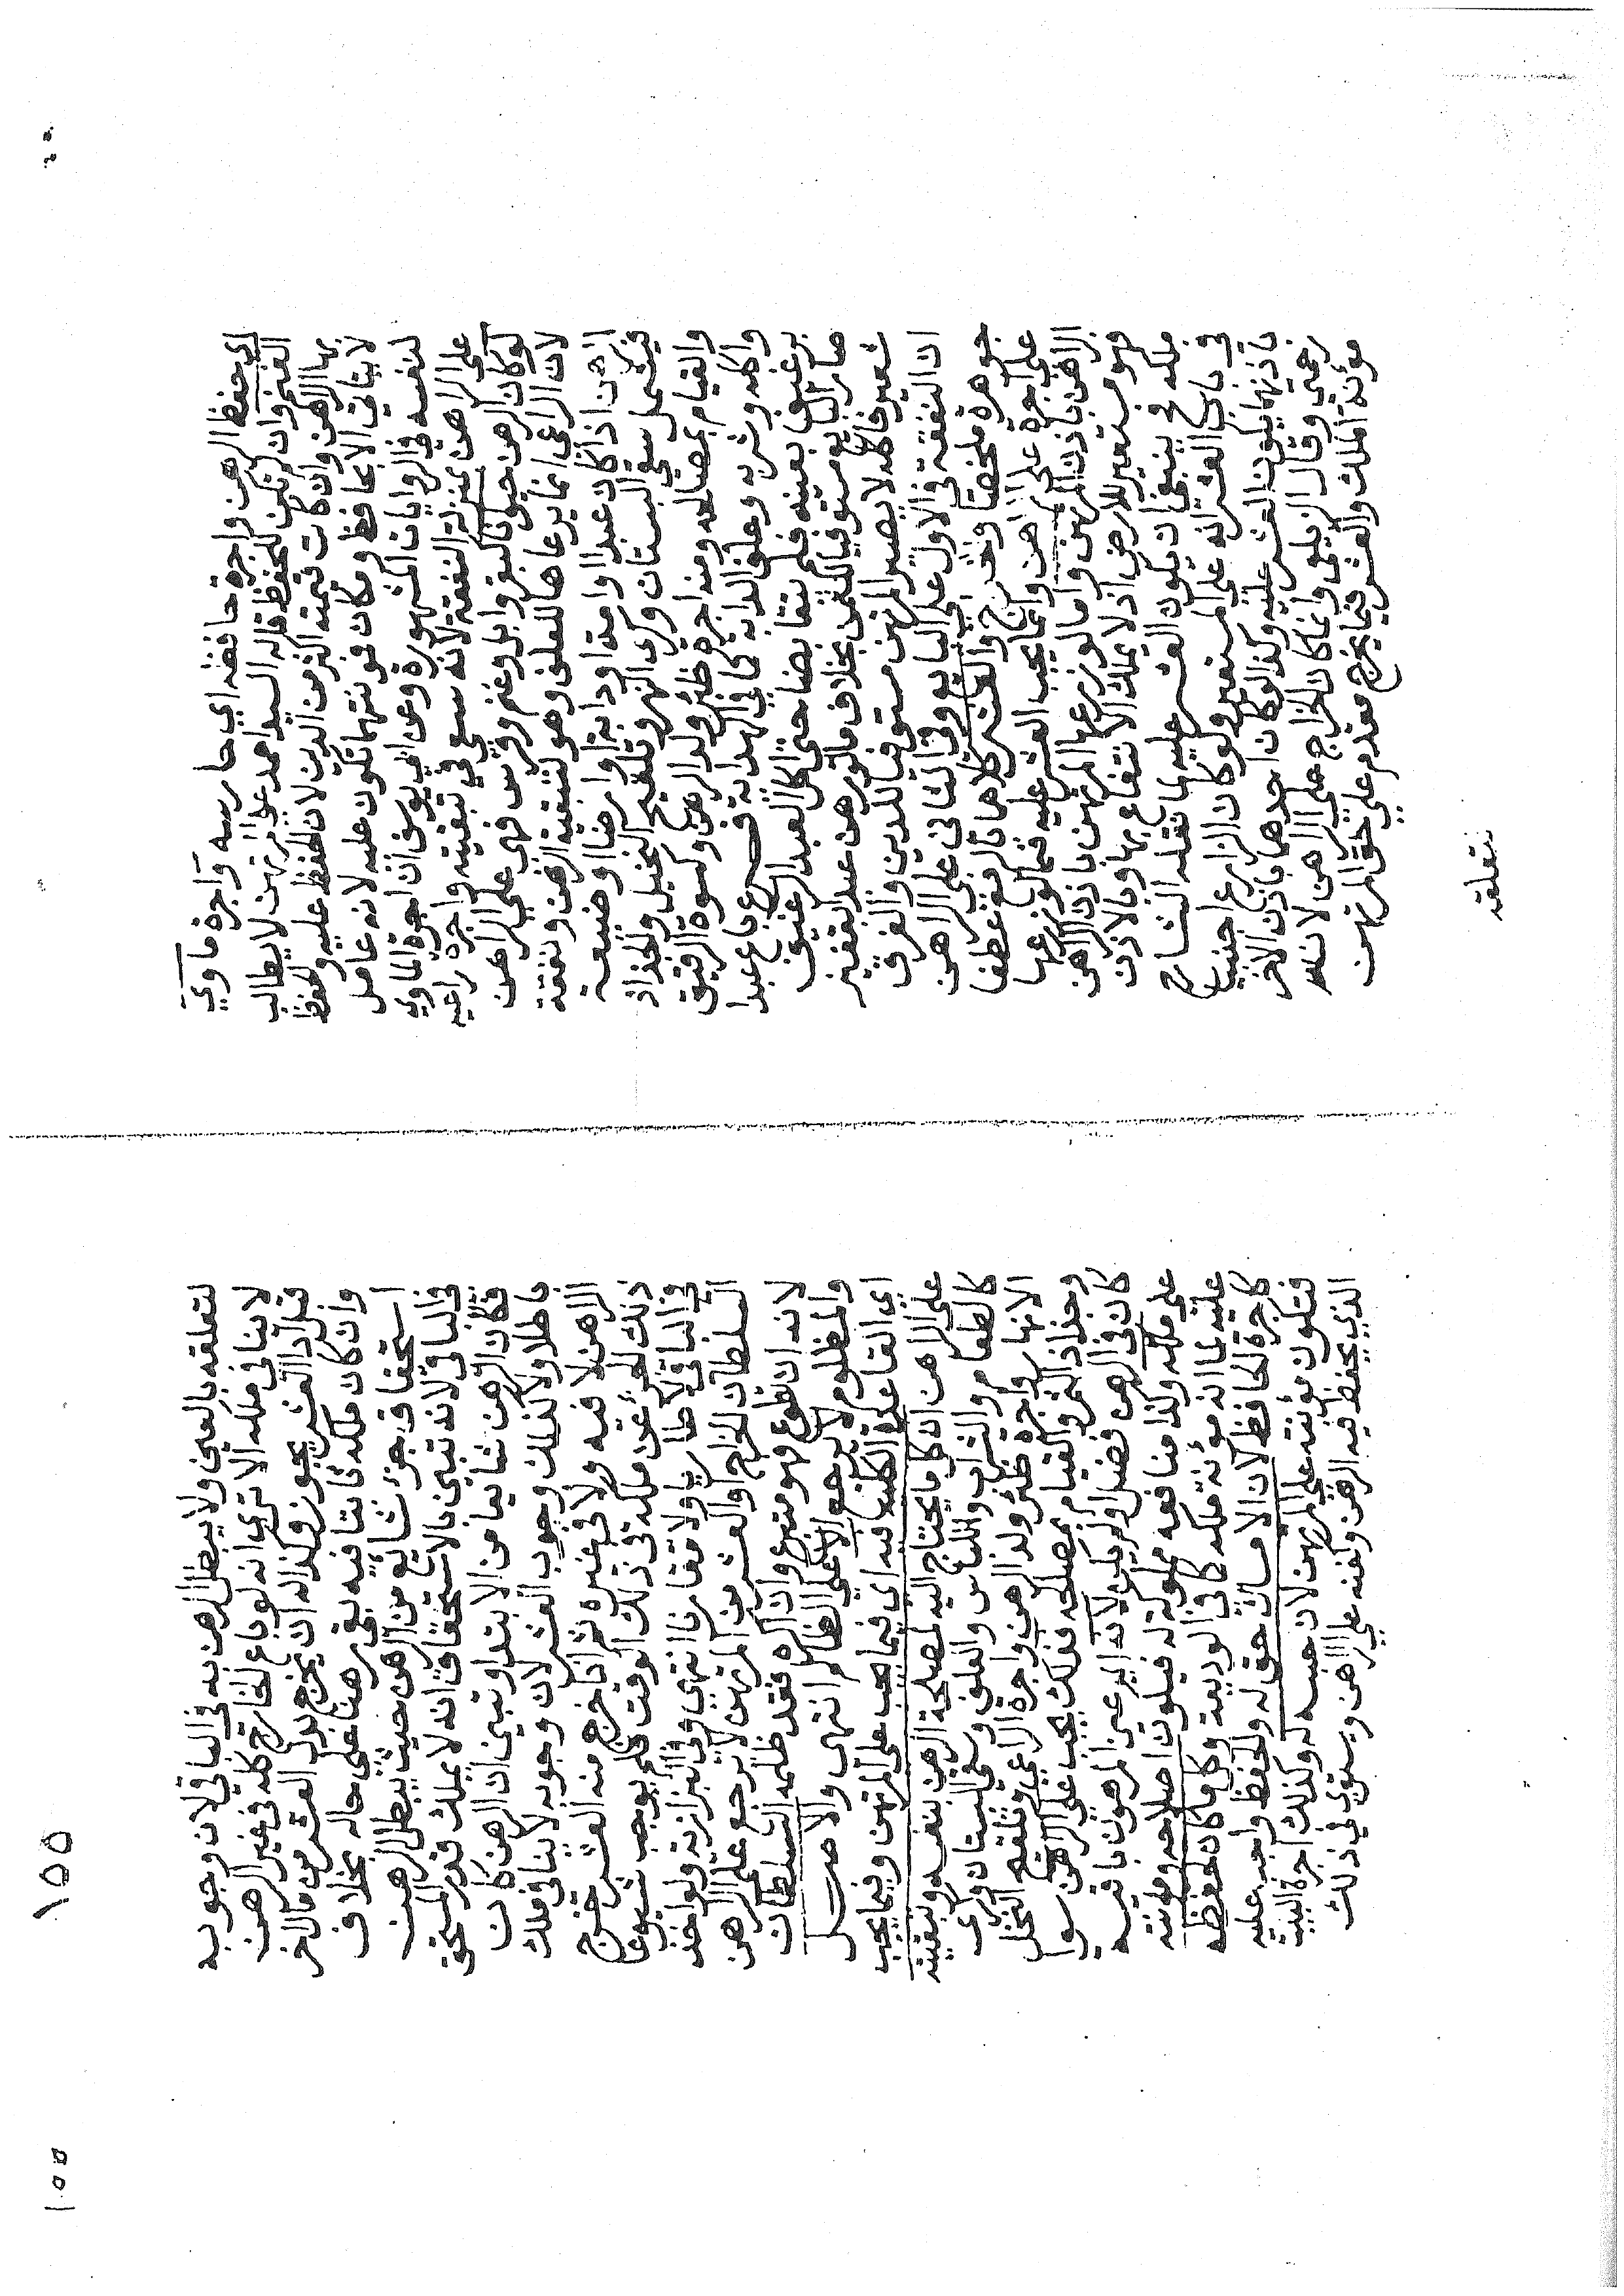 اي حفظ الرهن واجرة حافظه اي حارسه واجرة ماوي
الغنم وان لم تكن للحفظ قاله السيد احمد المرتهن لا يطالب
بها الراهن وان كانت قيمته اكثر من الدين لان الحفظ عليه والحفظ
لا يتاتي الا بحافظ ومكان فمونتهما تكون عليه لانه عامل
لنفسه في الروايات المشهورة وعن ابي يوسف ان اجرة الماوي
على الراهن بمنزلة النفقة لانه سعي في تبقيته واجرة راعيه
لو كان الرهن حيوانا كبقر وابل وغنم وفرس فهي علي الراهن
لان الراعي انما يرعاها للعلف وهو لتبقية الرهن ونفقة
الرهن اذا كان عبدا او امة او دابة او ارضا او ضيعة
فيشمل سقي البستان وكري النهر وتلقيح النخيل والجذاذ
والقيام بمصالحه ومنه اجرة ظئر ولد الرهن وكسوة الرقيق
واكله وشربه وعلف الدابة كما في الهداية فرع باع عبدا
برغيف بعينه فلم يتقابضا حتي اكل العبد الرغيف
صار البايع مستوفيا للثمن بخلاف ما لو رهن عبدا بقفيز
شعير فاكله لا يصير المرتهن مستوفيا للدين والفرق
ان النفقة في الاول علي البايع وفي الثاني علي الراهن
جوهرة ملخصا والخراج والعشر كلاهما بالرفع عطفا
علي اجرة على الراهن وانما يجب العشر عليه فيما لو زرعها
الراهن باذن المرتهن واما لو زرعها المرتهن باذن الراهن
فهو مستعير للارض اذ لا يملك الانتفاع بها وبالاذن
ملكه فينبغي ان يكون العشر عليه لما نقله الشارح
في باب العشر انه علي المستعير ولو كان الزارع اجنبيا
باذنهما يكون العشر عليه وكذا لو كان احدهما باذن الاخر
رحمتي وقال الزيلعي وانما كان الخراج علي الراهن لانه
مؤنة الملك والعشر فيما يخرج مقدم علي حق المرتهن
لتعلقه
١٥٥
لتعلقه بالعين ولا يبطل الرهن به في الباقي لان وجوبه
لا ينافي ملكه الا تري انه لو باع الخارج كله في غير الرهن
قبل اداء العشر يجوز وكذا له ان يخرج بدل العشر من مال اخر
وان كان ملكه ثابتا فيه بقي رهنا علي حاله بخلاف
استحقاق جزء شايع من الرهن حيث يبطل الرهن
في الباقي لانه تبين بالاستحقاق انه لا يملك قدر المستحق
فكان الرهن شايعا من الابتداء وتبين ان الرهن كان
باطلا ولا كذلك وجوب العشر لان وجوبه لا ينافي ملك
الراهن لا فيه ولا في غيره ثم اذا خرج منه العشر خرج
ذلك الجزء عن ملكه في ذلك الوقت فلم يوجب شيوعا
في الباقي لا طاريا ولا مقارنا انتهي وفي البزازية ولو اخذ
السلطان الخراج او العشر من المرتهن لا يرجع علي الراهن
لانه ان تطوع فهو متبرع وان اكره فقد ظلمه السلطان
والمظلوم لا يرجع الا علي الظالم انتهى والاصل
اي القاعدة الكلية فيه اي فيما يجب على المرتهن وفيما يجب
علي الراهن ان كل ما يحتاج اليه لمصلحة الرهن بنفسه وتبقيته
كالطعام والشراب واللباس والعلف وسقي البستان وكري
الانهار واجرة ظئر ولد الرهن واجرة الراعي وتلقيح النخل
وجذاذ الثمر والقيام بمصلحه فذلك يجب علي الراهن سوا
كان في الرهن فضل او لم يكن لانه العين المرهون باقية
علي ملكه وكذا منافعه مملوكة له فيكون اصلاحه ومونته
عليه لما انه مؤنة ملكه كما في الوديعة وكل ما كان لحفظه
كاجرة الحافظ لان الامساك حق له والحفظ واجب عليه
فتكون مؤنته علي المرتهن لان حبسه له وكذلك اجرة البيت
الذي يحفظ فيه الرهن ولفنه علي الراهن ويستوي في ذلك
١٥٥